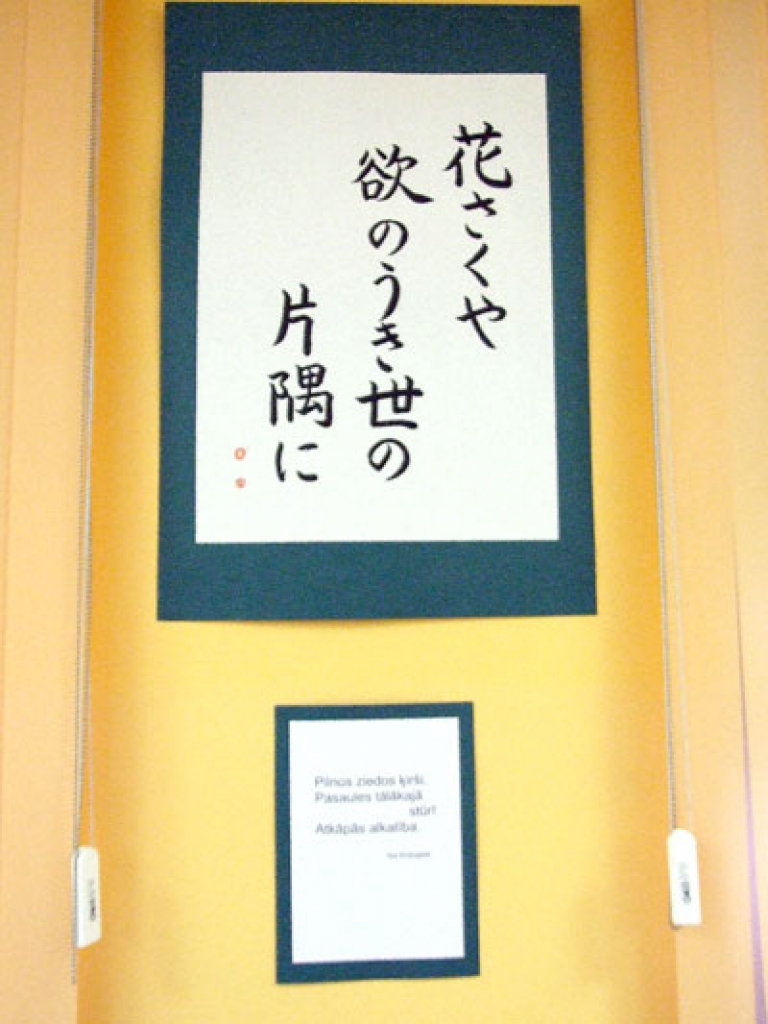 花さくや
欲のうき世の
片隅に
Pilnos ziedos ķirši.
Pasaules tālākajā
stūrī
Atkāpās alkatība.